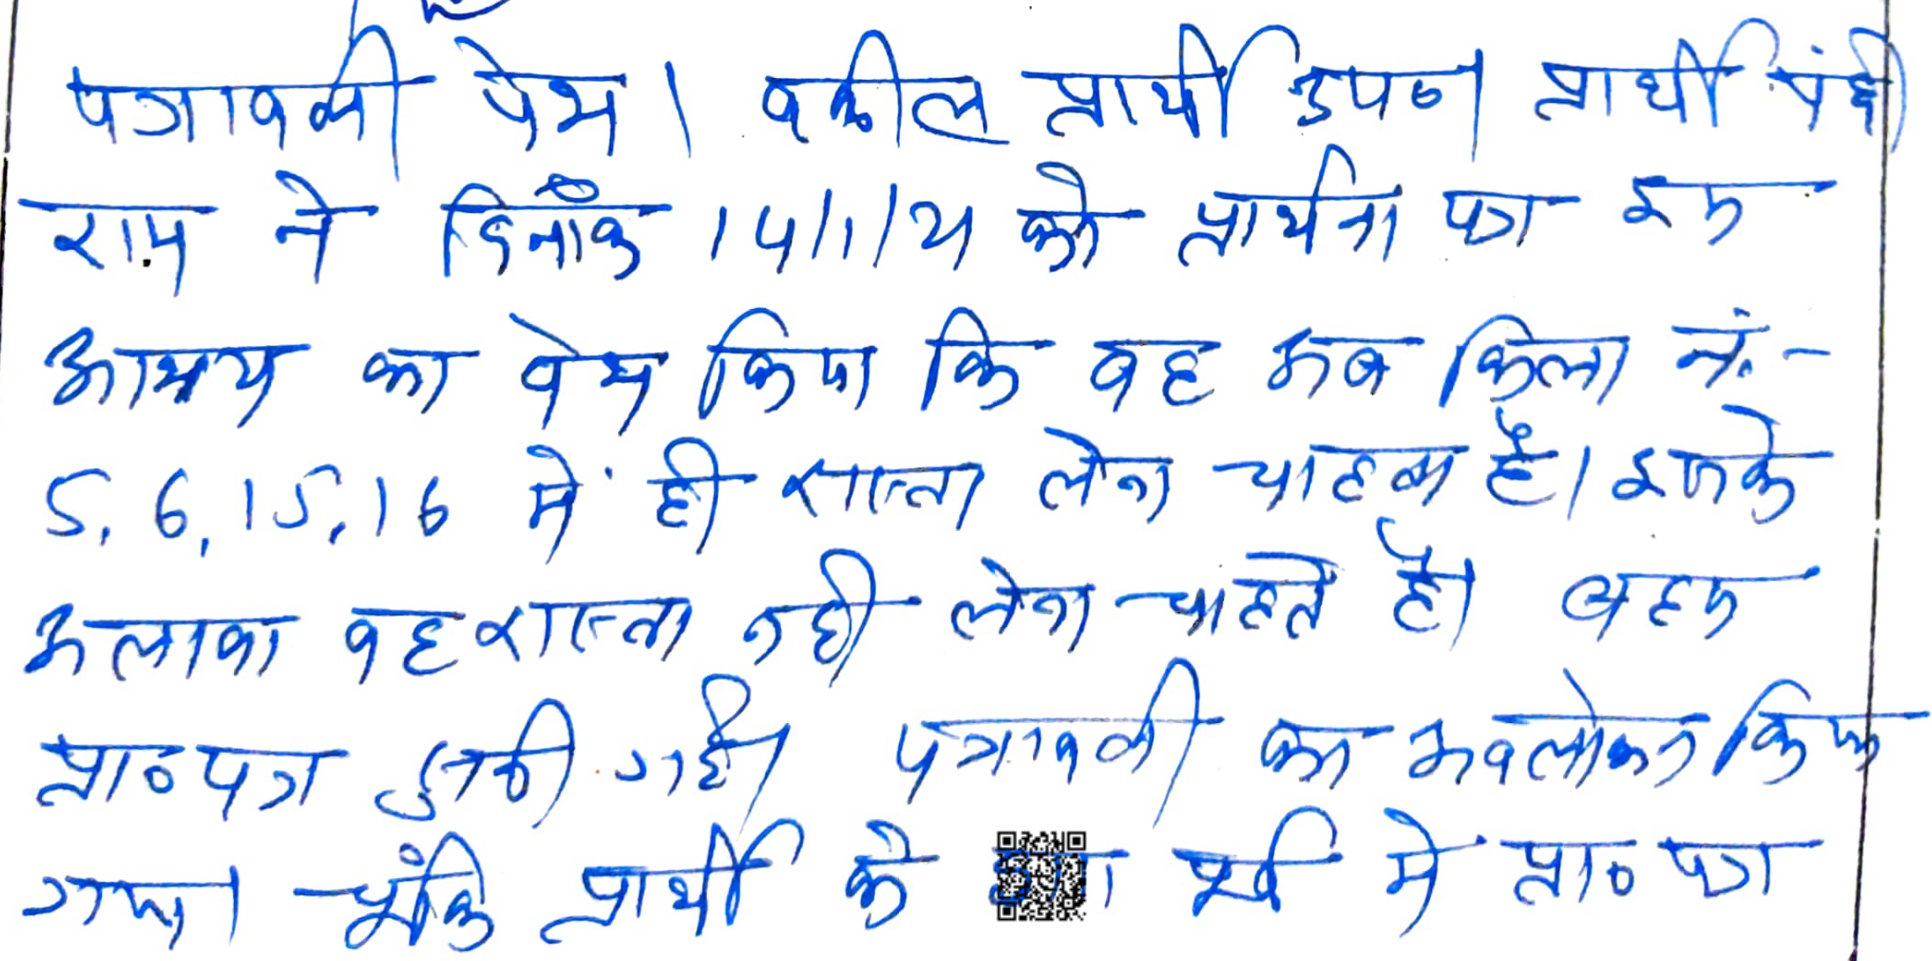 पत्रावली पेश। वकील प्रार्थी उप०। प्रार्थी
राम ने दिनाँक 14/1/21 को प्रार्थना पत्र इस
आशय का पेश किया कि वह अब किला नं.-
5, 6, 15, 16 में ही रास्ता लेना चाहता है। इसके
अलावा वह रास्ता नही लेना चाहते है। बहस
प्रा० पत्र सुनी गई। पत्रावली का अवलोकन किया
गया। चूंकि प्रार्थी के पूर्व में प्रा० पत्र